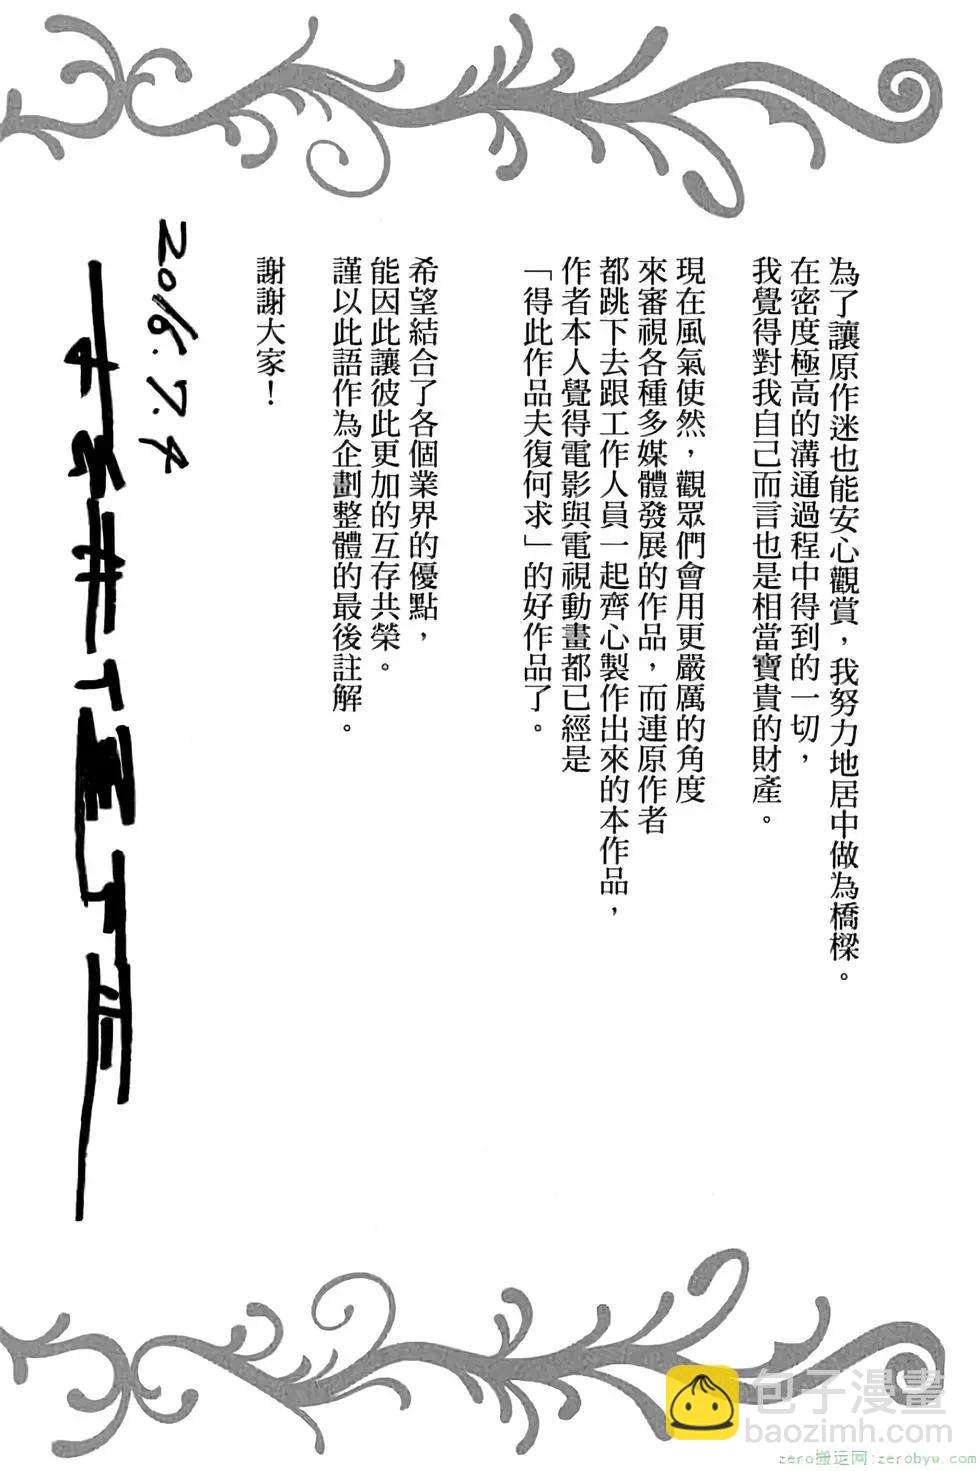 為了讓原作迷也能安心觀賞，我努力地居中做為橋樑。
在密度極高的溝通過程中得到的一切，
我覺得對我自己而言也是相當寶貴的財產。
現在風氣使然，觀眾們會用更嚴厲的角度
來審視各種多媒體發展的作品，而連原作者
都跳下去跟工作人員一起齊心製作出來的本作品，
作者本人覺得電影與電視動畫都已經是
「得此作品夫復何求」的好作品了。
希望結合了各個業界的優點，
能因此讓彼此更加的互存共榮。
謹以此語作為企劃整體的最後註解。
謝謝大家！
2016.7.4
包子漫畫
baozimh.com
zero搬运网:zerobyw.com